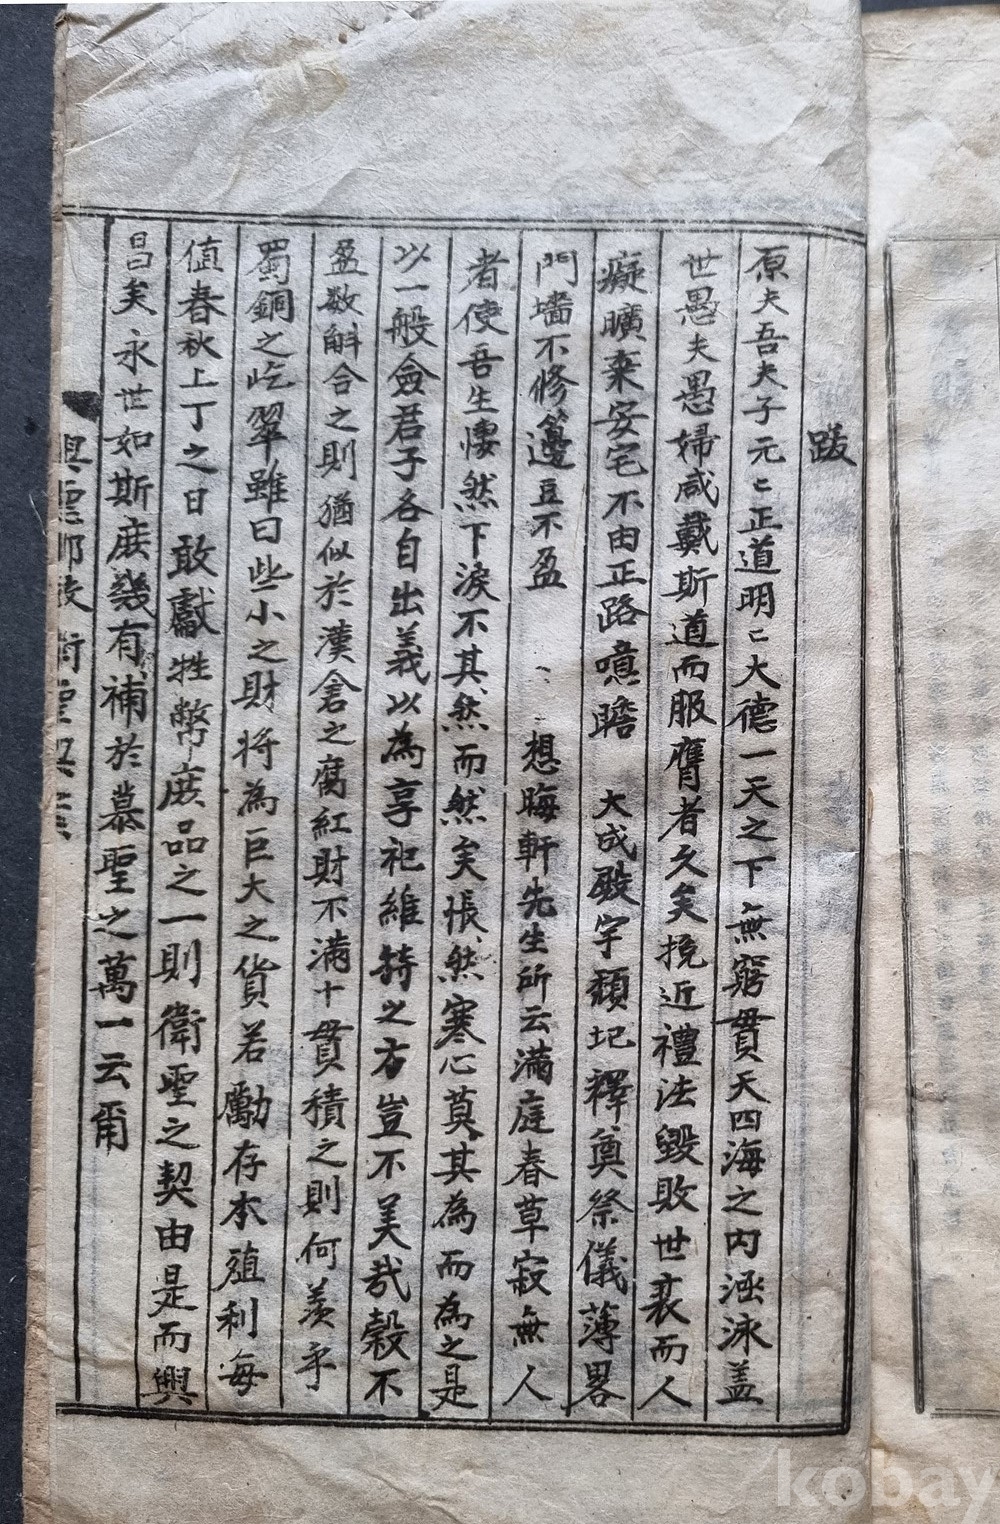 跋
原夫吾夫子元〻正道明〻大德一天之下無窮貫天四海之內涵泳盖
世愚夫愚婦咸戴斯道而服膺者久矣挽近禮法毀敗世衰而人
癡曠棄安宅不由正路噫瞻 大成殿宇頹圮釋奠祭儀薄畧
門墻不修籩豆不盈 想晦軒先生所云滿庭春草寂無人
者使吾生悽然下淚不其然而然矣悵然寒心莫其爲而爲之是
以一般僉君子各自出義以爲享祀維持之方豈不美哉穀不
盈数斛合之則猶似於漢倉之腐紅財不滿十貫積之則何羨乎
蜀銅之屹翠雖曰些小之財將爲巨大之貨若勵存本殖利每
値春秋上丁之日敢獻牲幣庶品之一則衛聖之契由是而興
昌矣永世如斯庶幾有補於慕聖之萬一云爾
kobay